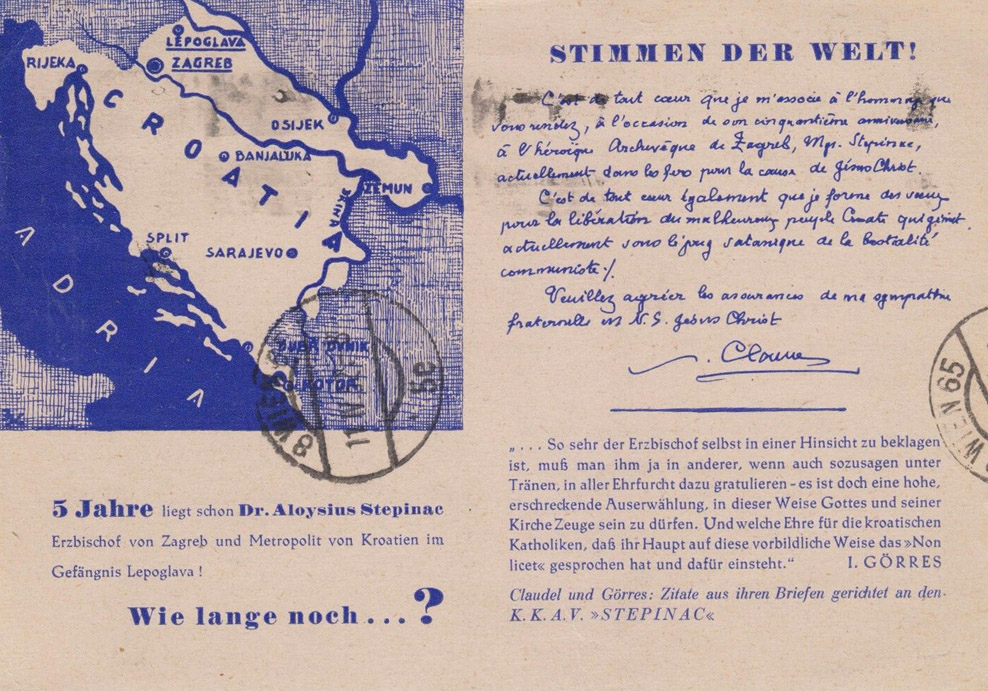 LEPOGLAVA
ZAGREB
RIJEKA
CROATIA
OSIJEK
BANJALUKA
ZEMUN
DRINA
SPLIT
SARAJEVO
ADRIA
DUBROVNIK
KOTOR
WIEN 65
5 Jahre liegt schon Dr. Aloysius Stepinac
Erzbischof von Zagreb und Metropolit von Kroatien im
Gefängnis Lepoglava !
Wie lange noch...?
STIMMEN DER WELT!
C'est de tout cœur que je m'associe à l'hommage que
vous rendez, à l'occasion de son cinquantième anniversaire,
à l'héroïque Archevêque de Zagreb, Mgr. Stepinac,
actuellement dans les fers pour la cause de Jésus Christ.
C'est de tout cœur également que je forme des vœux
pour la libération du malheureux peuple Croate qui gémit
actuellement sous le joug satanique de la bestialité
communiste !
Veuillez agréer les assurances de ma sympathie
fraternelle en N. S. Jésus Christ
. Claudel
„ . . . So sehr der Erzbischof selbst in einer Hinsicht zu beklagen
ist, muß man ihm ja in anderer, wenn auch sozusagen unter
Tränen, in aller Ehrfurcht dazu gratulieren - es ist doch eine hohe,
erschreckende Auserwählung, in dieser Weise Gottes und seiner
Kirche Zeuge sein zu dürfen. Und welche Ehre für die kroatischen
Katholiken, daß ihr Haupt auf diese vorbildliche Weise das »Non
licet« gesprochen hat und dafür einsteht.“ I. GÖRRES
Claudel und Görres: Zitate aus ihren Briefen gerichtet an den
K. K. A. V. »STEPINAC«
WIEN 65